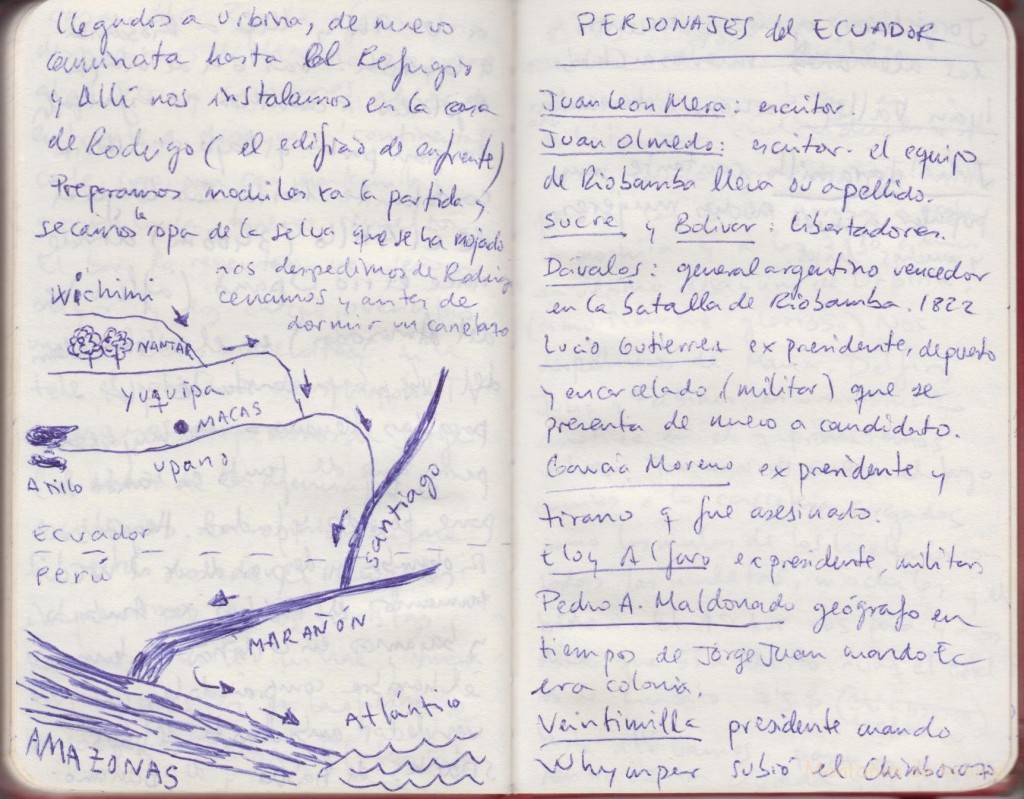 llegados a Urbina, de nuevo
caminata hasta el Refugio
y Allí nos instalamos en la casa
de Rodrigo (el edificio de enfrente)
Preparamos mochilas xa la partida,
secamos la ropa de la selva que se ha mojado
nos despedimos de Rodrigo
cenamos y antes de
dormir un canelazo
Wichimi
NANTAR
Yuquipa
MACAS
Upano
Atillo
Ecuador
Perú
Santiago
MARAÑÓN
Atlántico
AMAZONAS
PERSONAJES del ECUADOR
Juan Leon Mera: escritor.
Juan Olmedo: escritor. el equipo
de Riobamba lleva su apellido.
Sucre y Bolívar: libertadores.
Dávalos: general argentino vencedor
en la batalla de Riobamba. 1822
Lucio Gutierrez ex presidente, depuesto
y encarcelado (militar) que se
presenta de nuevo a candidato.
García Moreno ex presidente y
tirano q fue asesinado.
Eloy Alfaro ex presidente, militar
Pedro A. Maldonado geógrafo en
tiempos de Jorge Juan cuando Ec
era colonia.
Veintimilla presidente cuando
Whymper subió el Chimborazo